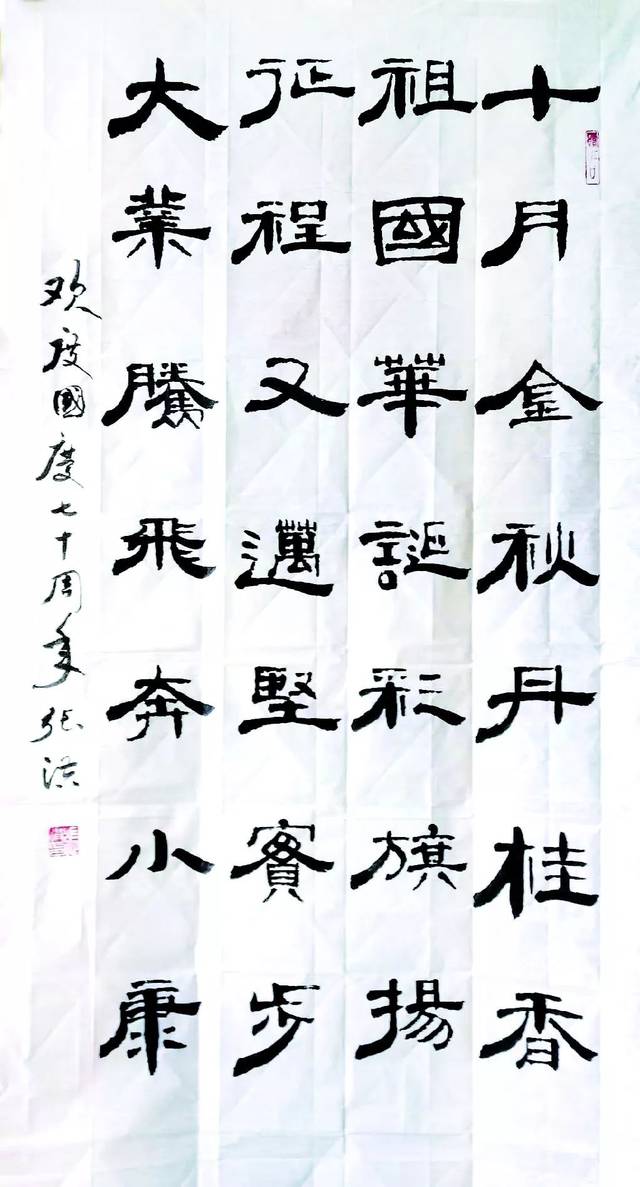 十月金秋丹桂香
祖國華誕彩旗揚
征程又邁堅實步
大業騰飛奔小康
欢度國慶七十周年 张洪